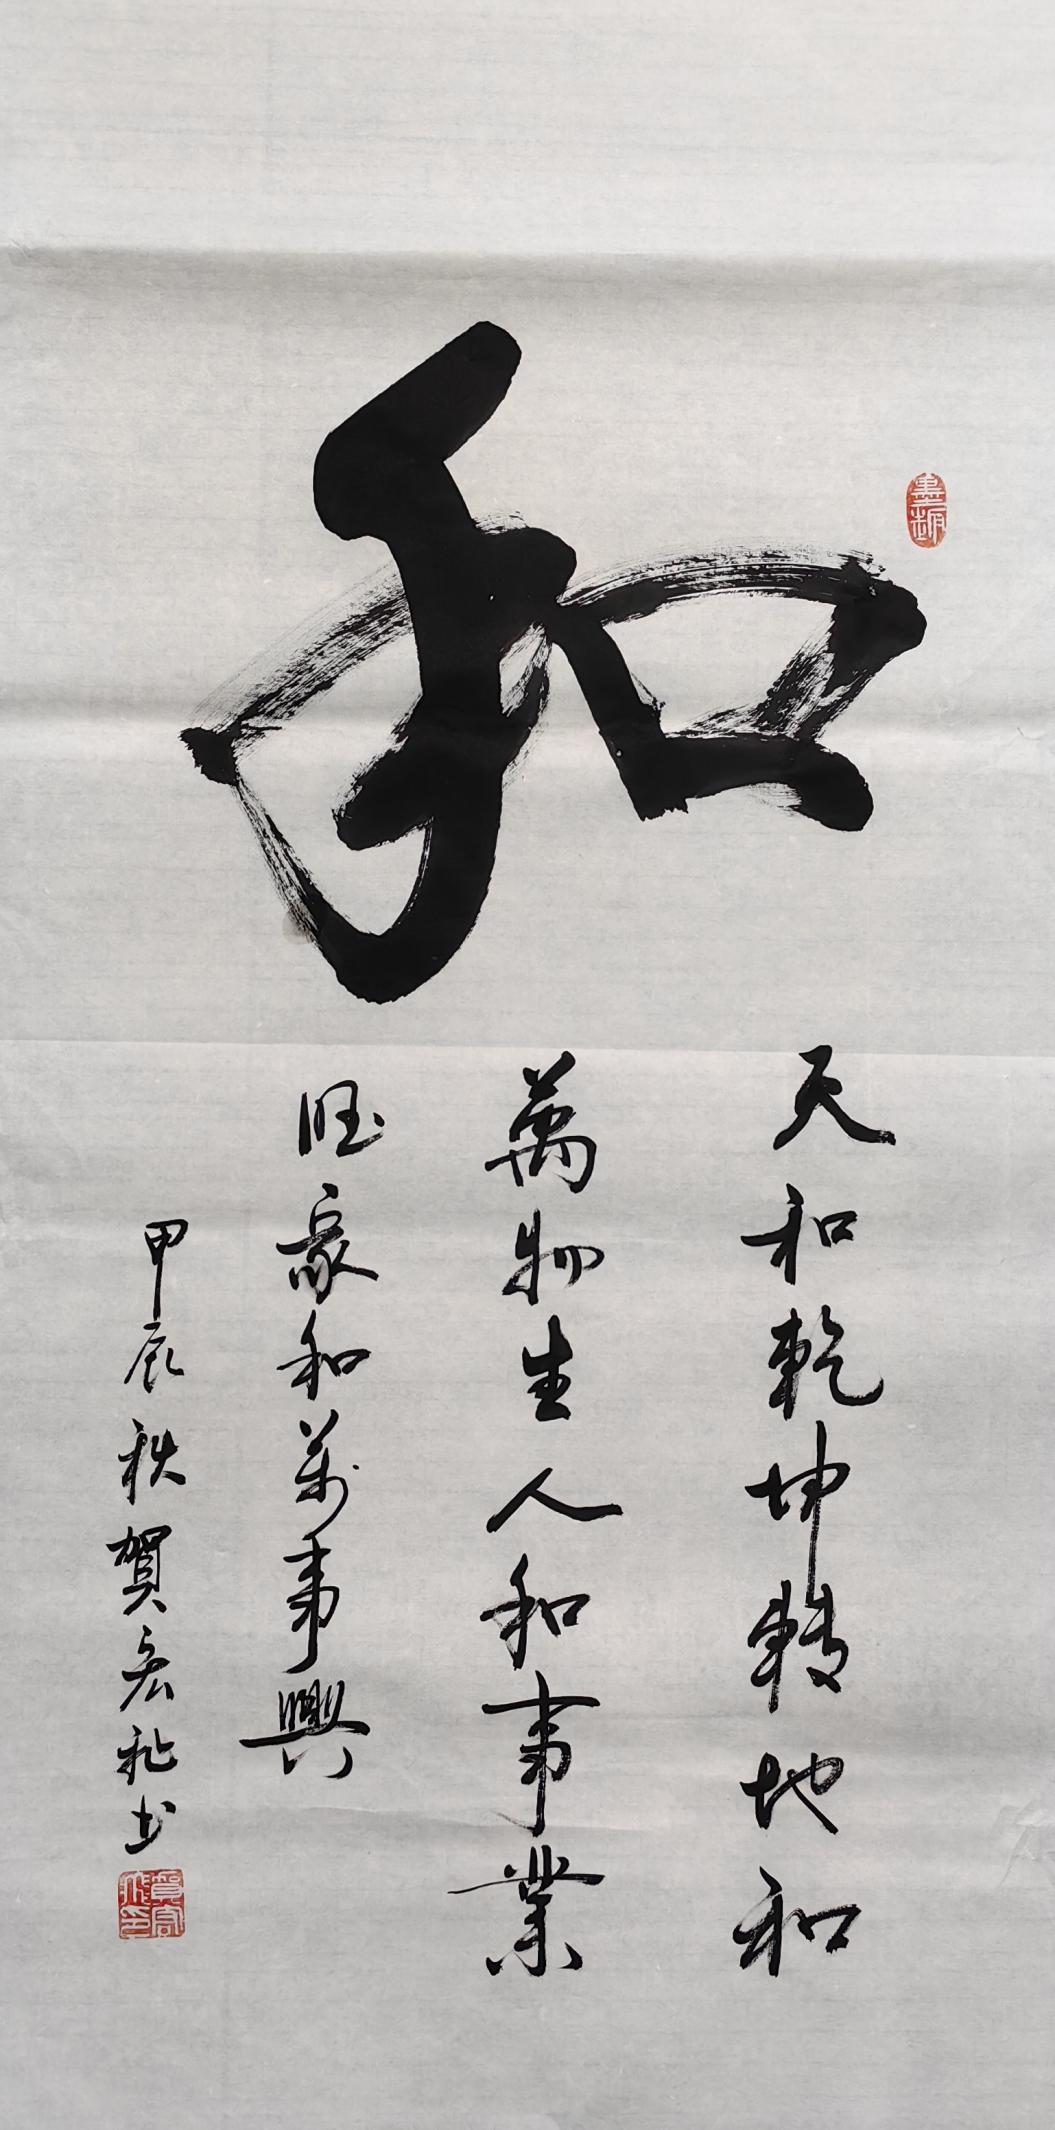 和
天和乾坤轉地和
萬物生人和事業
旺家和萬事興
甲辰秋賀宏飛書